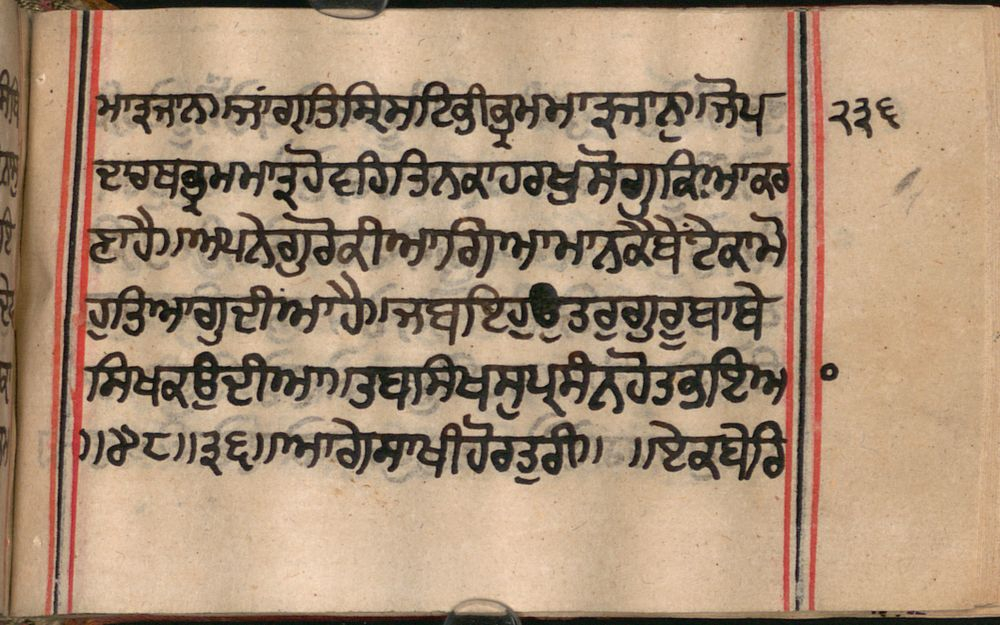 ਮਾਤ੍ਰਜਾਨ॥ਜਾਂਗ੍ਰਤਿਸ੍ਰਿਸਟਿਕੀਭ੍ਰਮਮਾਤ੍ਰਜਾਨੁ॥ਜੋਪ
ਦਾਰਥਭ੍ਰਮਮਾਤ੍ਰਹੋਵਹਿਤਿਨਕਾਹਰਖੁਸੋਗੁਕਿਆਕਰ
ਣਾਹੈ॥ਅਪਨੇਗੁਰੋਕੀਆਗਿਆਮਾਨਕੈਬੇਟੇਕਾਮੋ
ਹੁਤਿਆਗੁਦੀਆਹੈ॥ਜਬਇਹੁਉਤਰੁਗੁਰੂਬਾਬੇ
ਸਿਖਕਉਦੀਆ॥ਤਬਸਿਖਸੁਪ੍ਰਸੰਨਹੋਤਭਇਅ
॥੧੮॥੩੬॥ਆਗੇਸਾਖੀਹੋਰਤੁਰੀ॥ ॥ਏਕਬੇਰਿ
੨੩੬